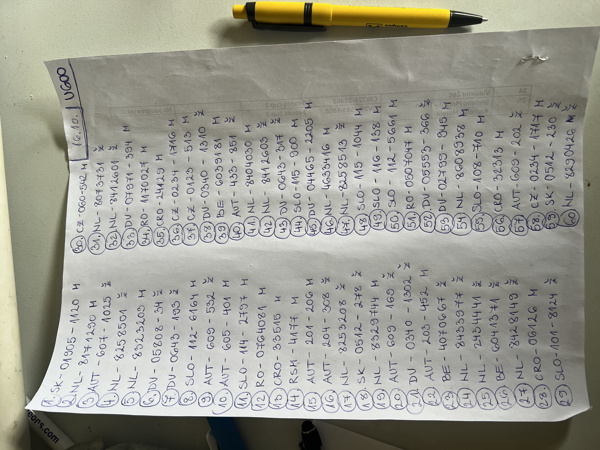 16.10. U600
1. SK - 01905 - 1120 M
2. NL - 8171290 M
3. AUT - 607 - 1025 Ž
4. NL - 8258501 Ž
5. NL - 8323209 M
6. DV - 05808 - 34 Ž
7. DV - 0643 - 193 Ž
8. SLO - 112 - 6164 M
9. AUT - 609 - 532 Ž
10. AUT - 605 - 401 M
11. SLO - 114 - 2797 M
12. RO - 0764081 M
13. CRO - 33515 M
14. RSK - 4177 M
15. AUT - 201 - 206 M
16. AUT - 204 - 308 Ž
17. NL - 8253208 Ž
18. SK - 0512 - 278 Ž
19. NL - 8329744 M
20. AUT - 609 - 169 Ž
21. DV 0340 - 1302 Ž
22. AUT - 203 - 452 M
23. BE - 4070667 Ž
24. NL - 8433977 Ž
25. NL - 2434441 Ž
26. BE - 6041371 Ž
27. NL - 8428149 Ž
28. CRO - 06126 M
29. SLO - 101 - 8124 Ž
30. CZ - 060 - 542 M
31. NL - 8073731 Ž
32. NL - 8412601 Ž
33. DV - 07971 - 394 M
34. RO - 1170027 M
35. CRO - 24129 M
36. CZ - 0234 - 1716 M
37. CZ - 0129 - 513 M
38. DV - 0340 - 1310 Ž
39. BE - 6039181 M
40. AUT - 433 - 951 Ž
41. NL - 8404030 M
42. NL - 8412603 Ž
43. DV - 0643 - 317 Ž
44. SLO - 115 - 900 M
45. DV - 04465 - 2205 M
46. NL - 4633416 M
47. NL - 8258513 Ž
48. SLO - 115 - 1044 M
49. SLO - 116 - 198 M
50. SLO - 112 - 5661 M
51. RO - 0507047 M
52. DV - 05553 - 366 Ž
53. DV - 02799 - 945 M
54. NL - 8608938 M
55. SLO - 108 - 710 M
56. CRO - 32313 M
57. AUT - 609 - 202 Ž
58. CZ - 0234 - 1767 M
59. SK - 0512 - 230 Ž
60. NL - 8290426 Ž